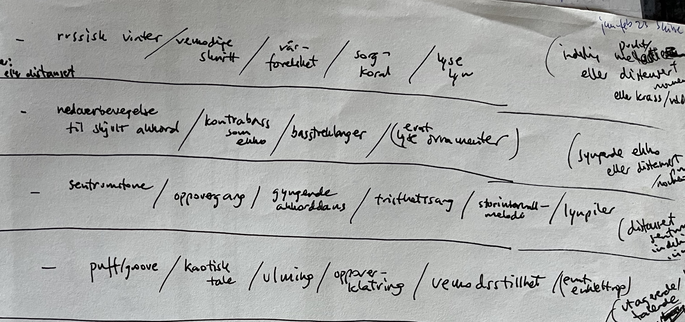 jan-feb 23 skisse
- russisk vinter / vemodige skritt / vår-forelsket / sorg-koral / lyse lyn (inderlig
eller distansert
eller krass/
eller distansert
- nedoverbevegelse til skjult akkord / kontrabass som ekko / basstreklanger / (evt lyse ornamenter) (syngende ekko
eller distansert
- sentrumstone / oppovergang / gyngende akkorddans / tristhetssang / storintervall-melodi / lynpiler (distansert
- puff/groove / kaotisk tale / ulming / oppover-klatring / vemodsstillhet / (evt enkelttrop) (utagerende/
talende